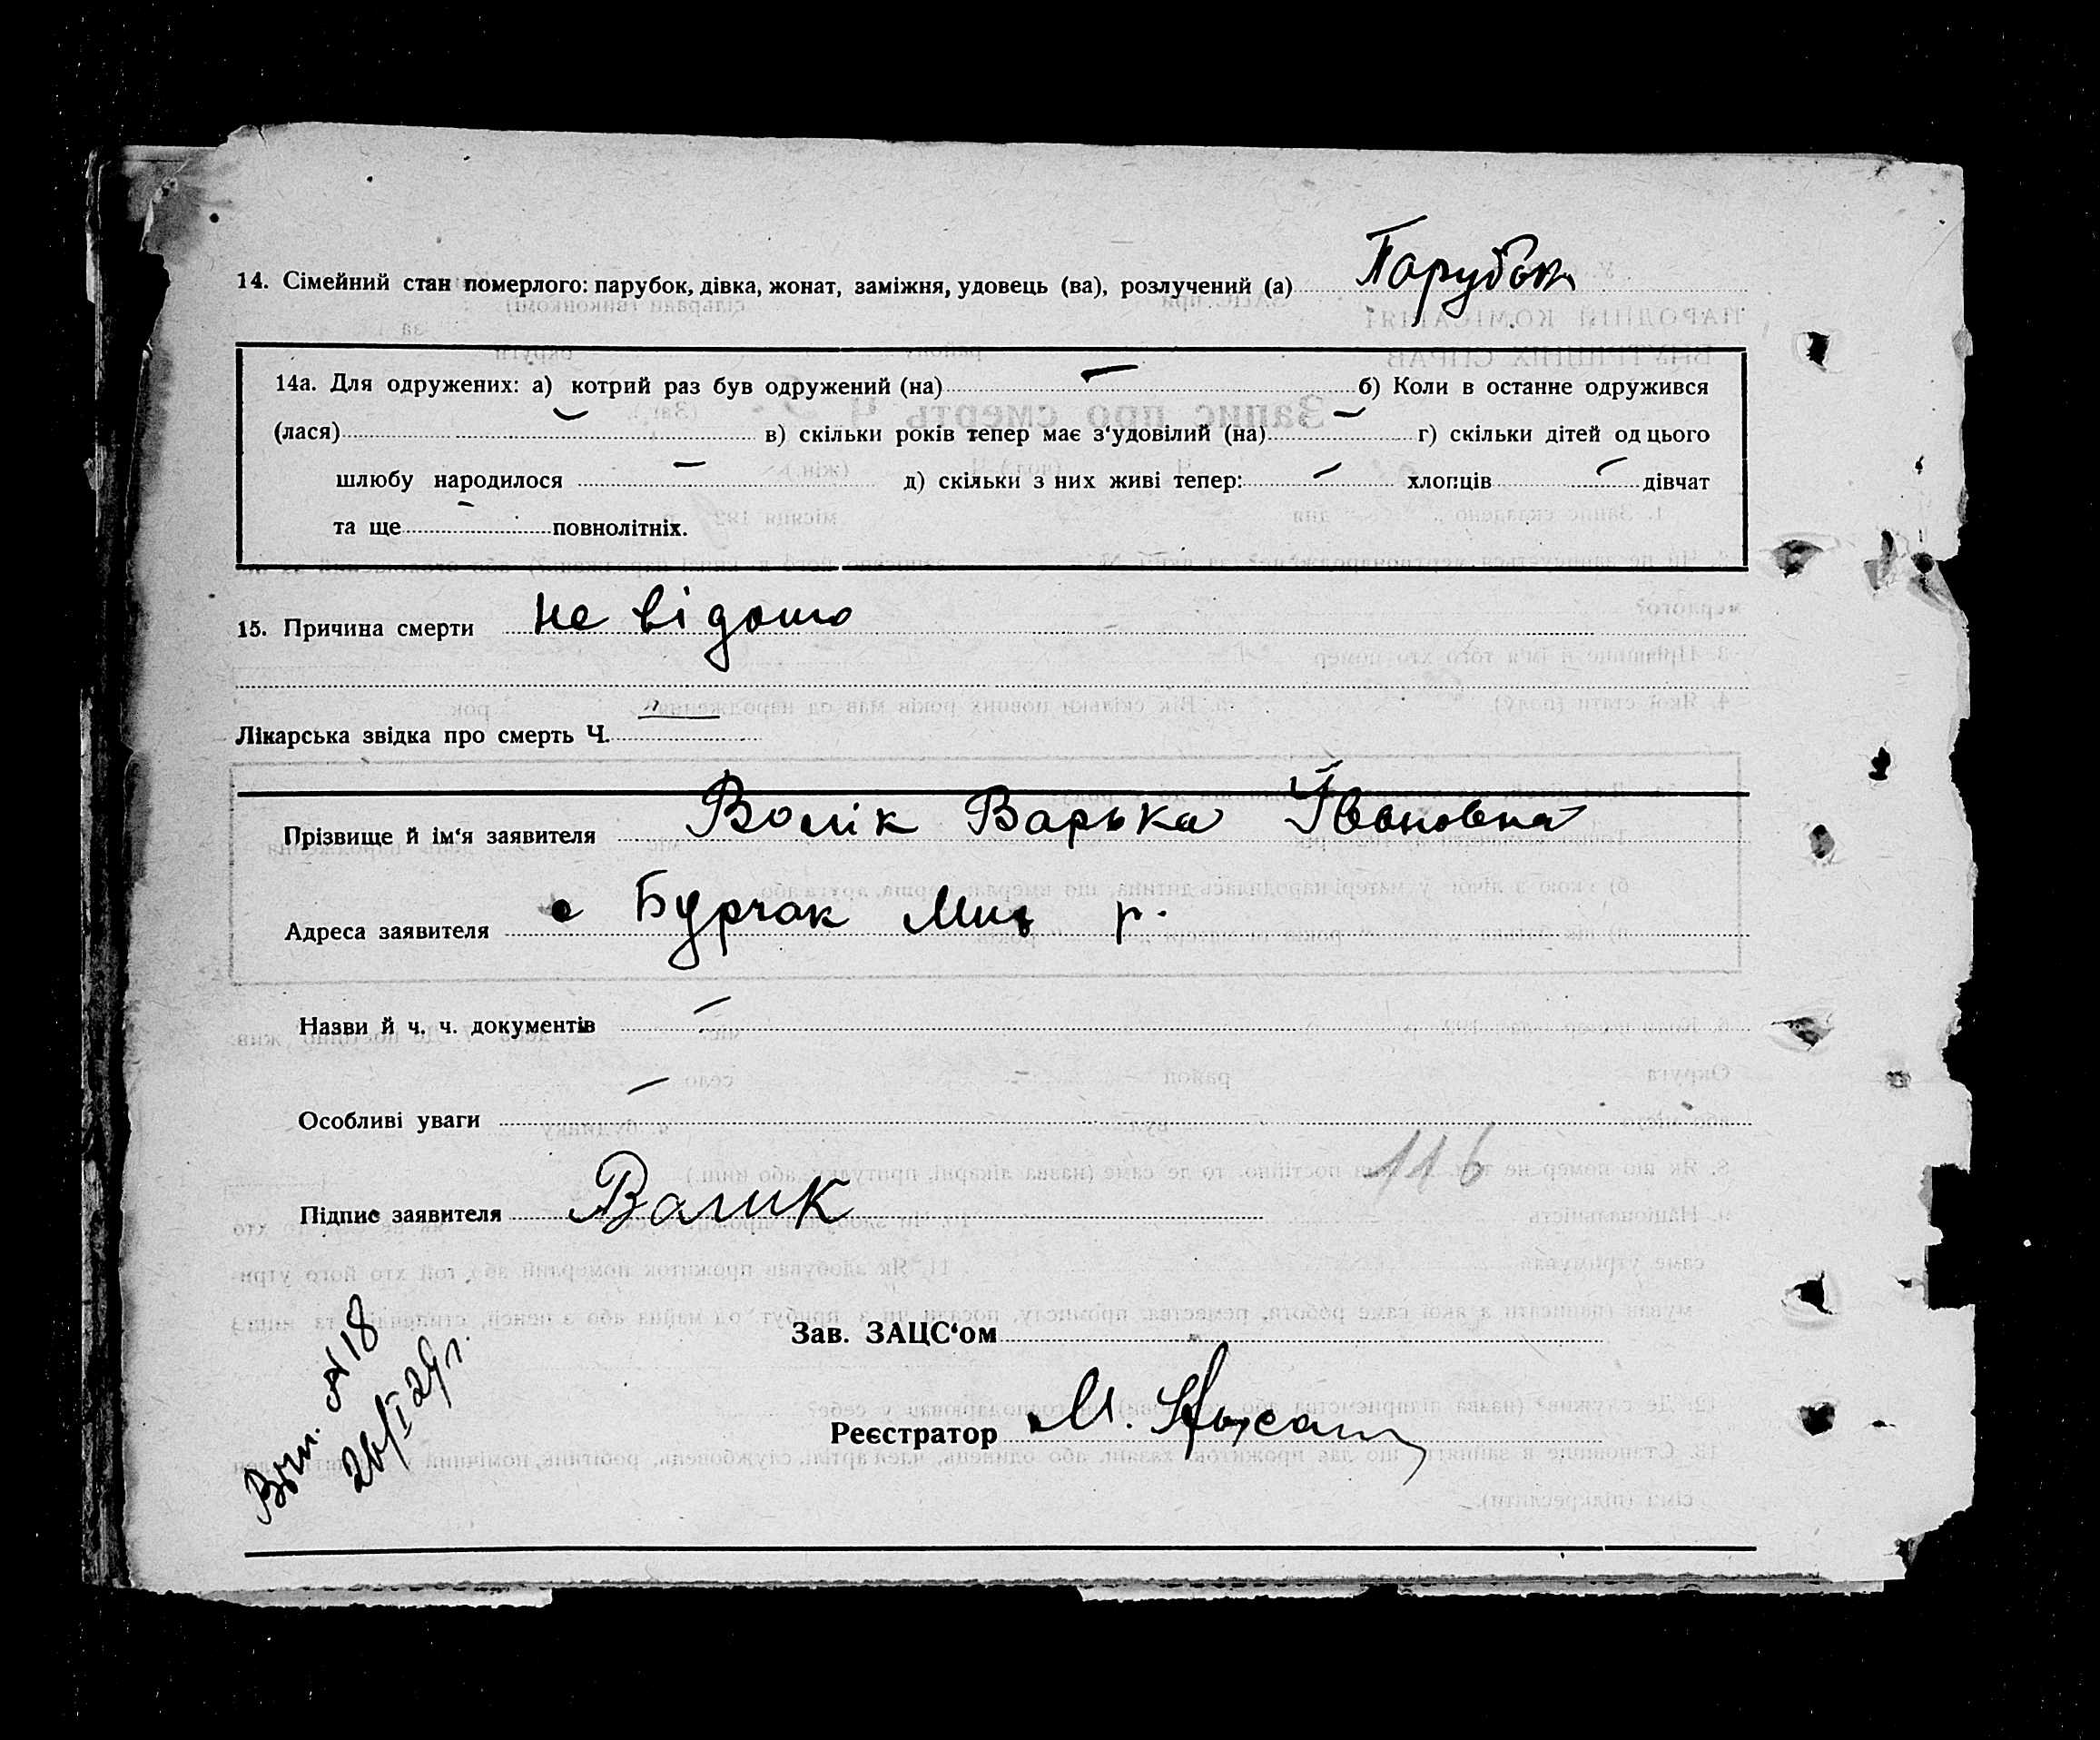 14. Сімейний стан померлого: парубок, дівка, жонат, заміжня, удовець (ва), розлучений (а) Парубок
14а. Для одружених: а) котрий раз був одружений (на) — б) Коли в останнє одружився
(лася) — в) скільки років тепер має з‘удовілий (на) — г) скільки дітей од цього
шлюбу народилося — д) скільки з них живі тепер: — хлопців — дівчат
та ще — повнолітніх.
15. Причина смерти не відомо
Лікарська звідка про смерть Ч. "
Прізвище й ім‘я заявителя Волік Варька Йвановна
Адреса заявителя с Бурчак Мих р.
Назви й ч. ч. документів —
Особливі уваги —
116
Підпис заявителя Валик
Зав. ЗАЦС‘ом
Реєстратор М.
Вып. № 18
26/I 29 г.